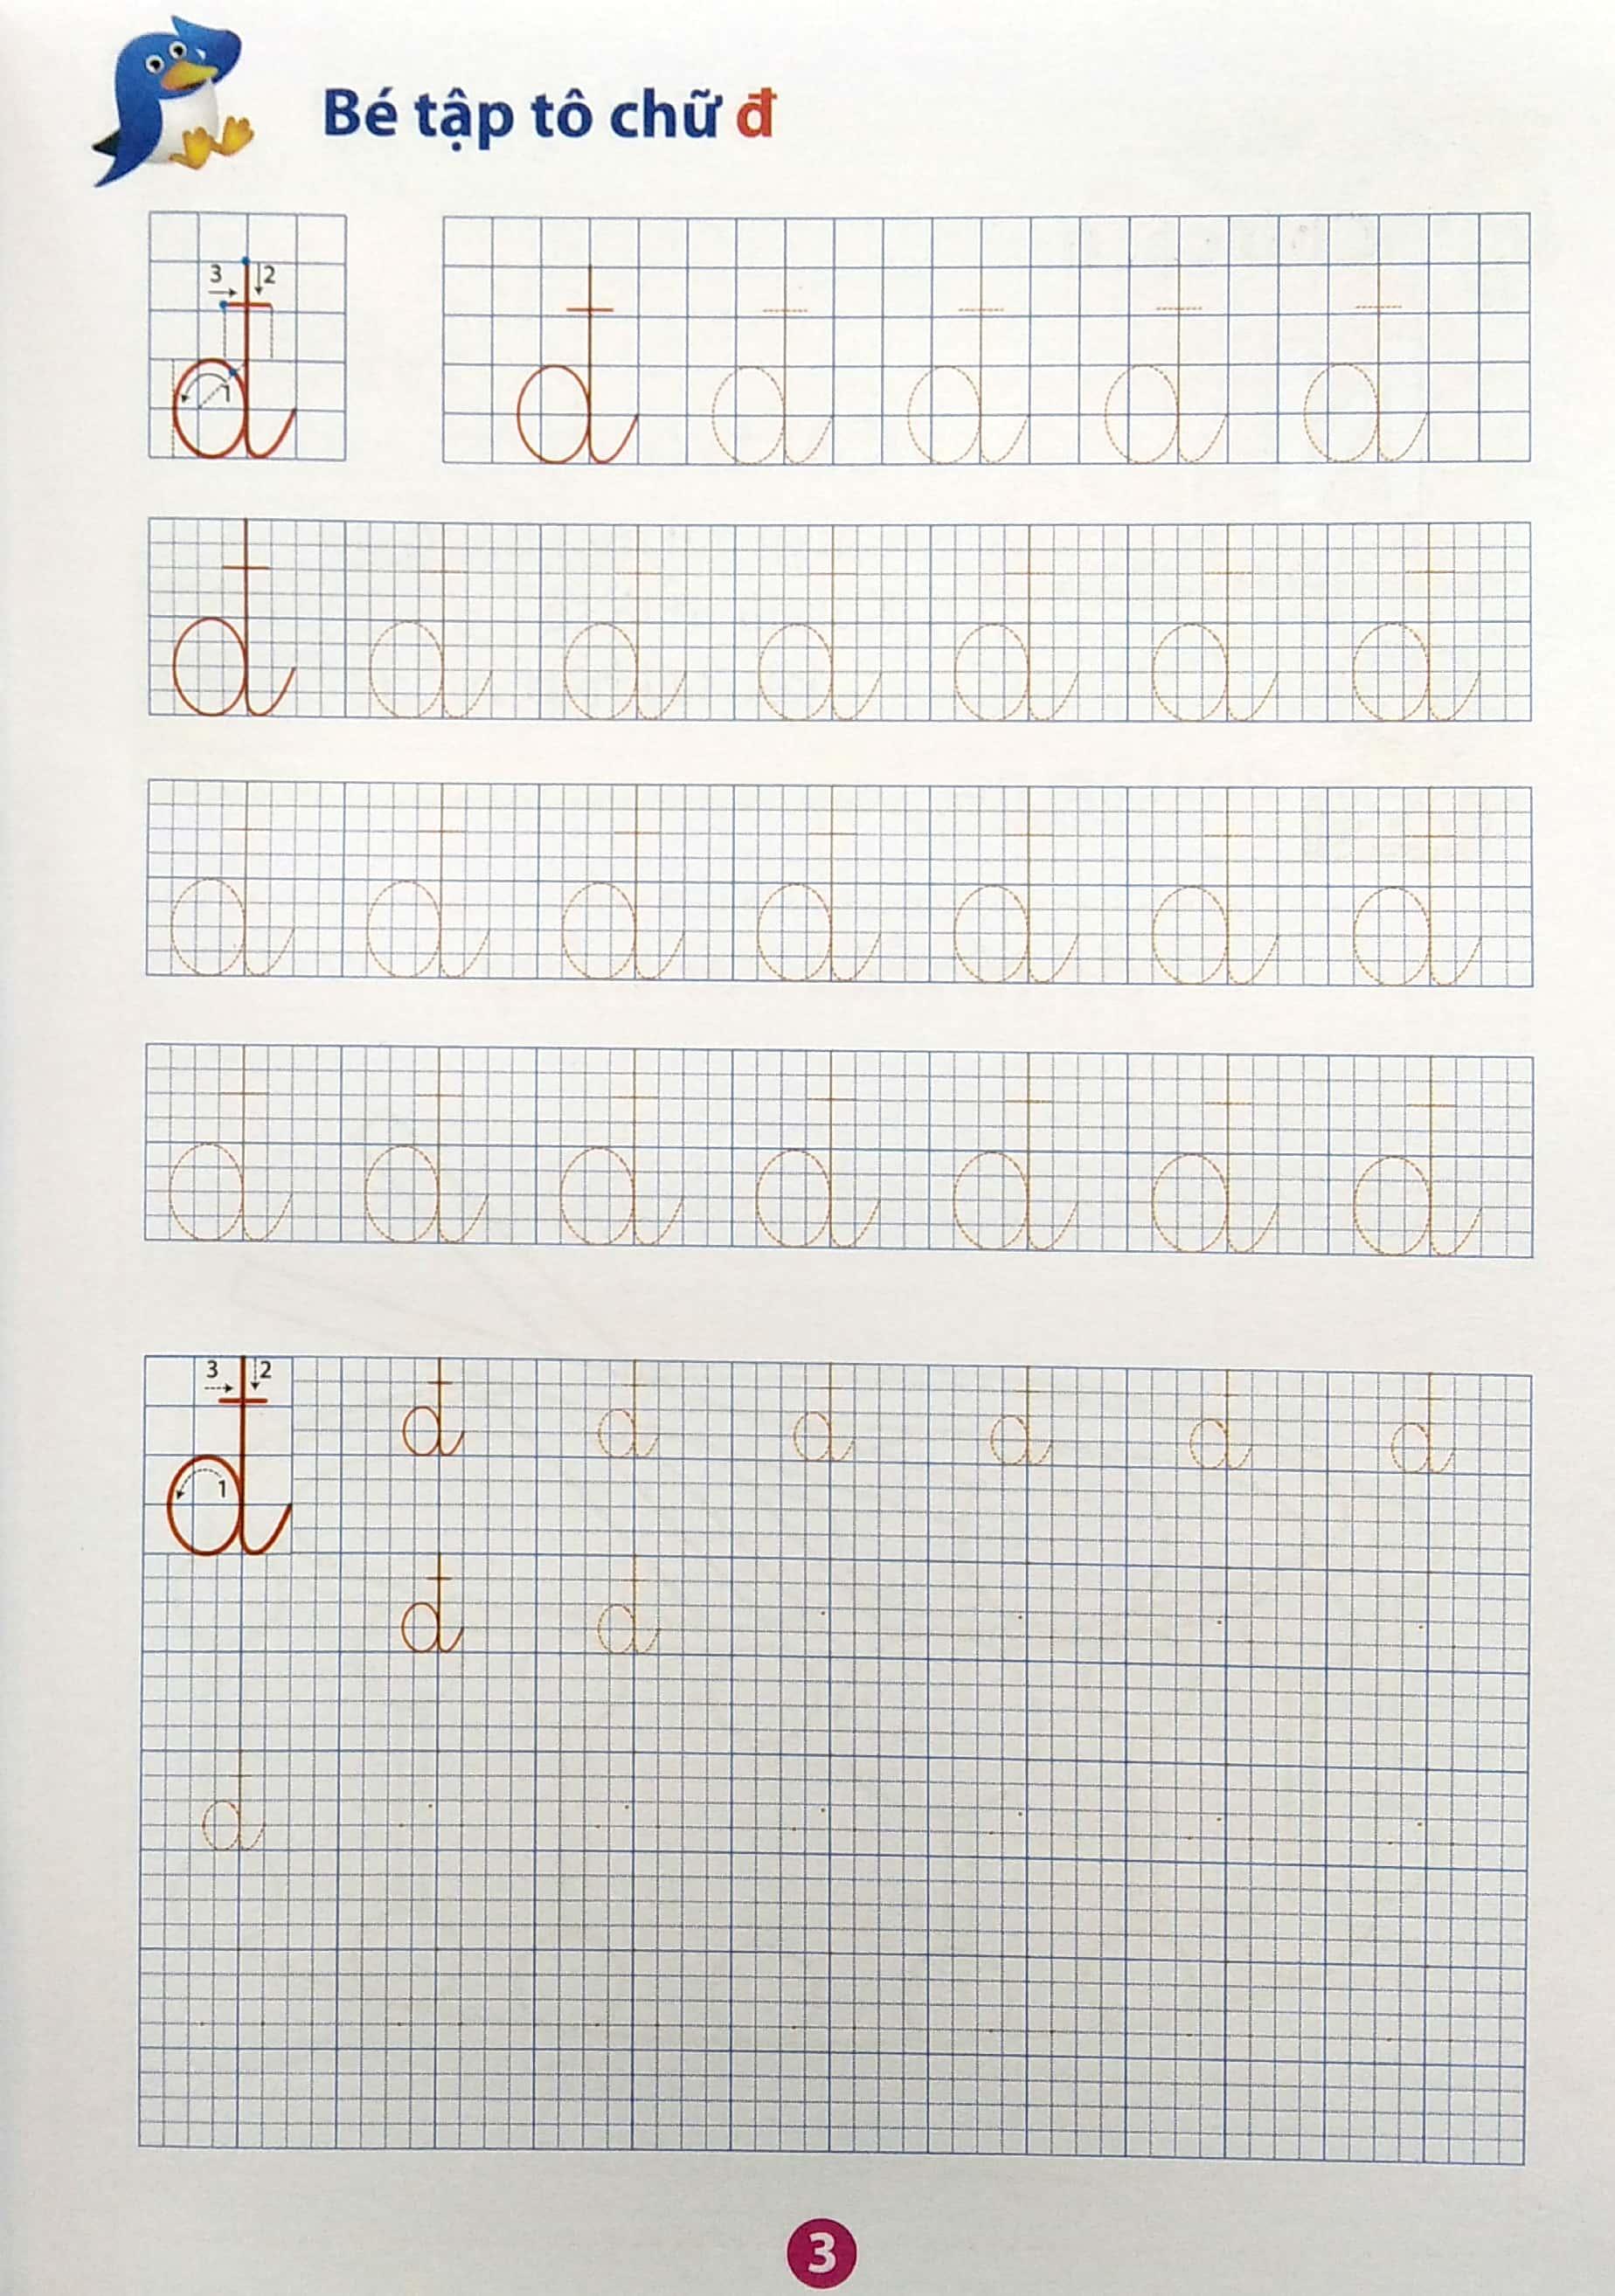 Bé tập tô chữ đ
3 2
1
đ đ đ đ đ đ
đ đ đ đ đ đ đ
đ đ đ đ đ đ đ
đ đ đ đ đ đ đ
3 2
1
đ đ đ đ đ đ đ
đ đ
đ
3